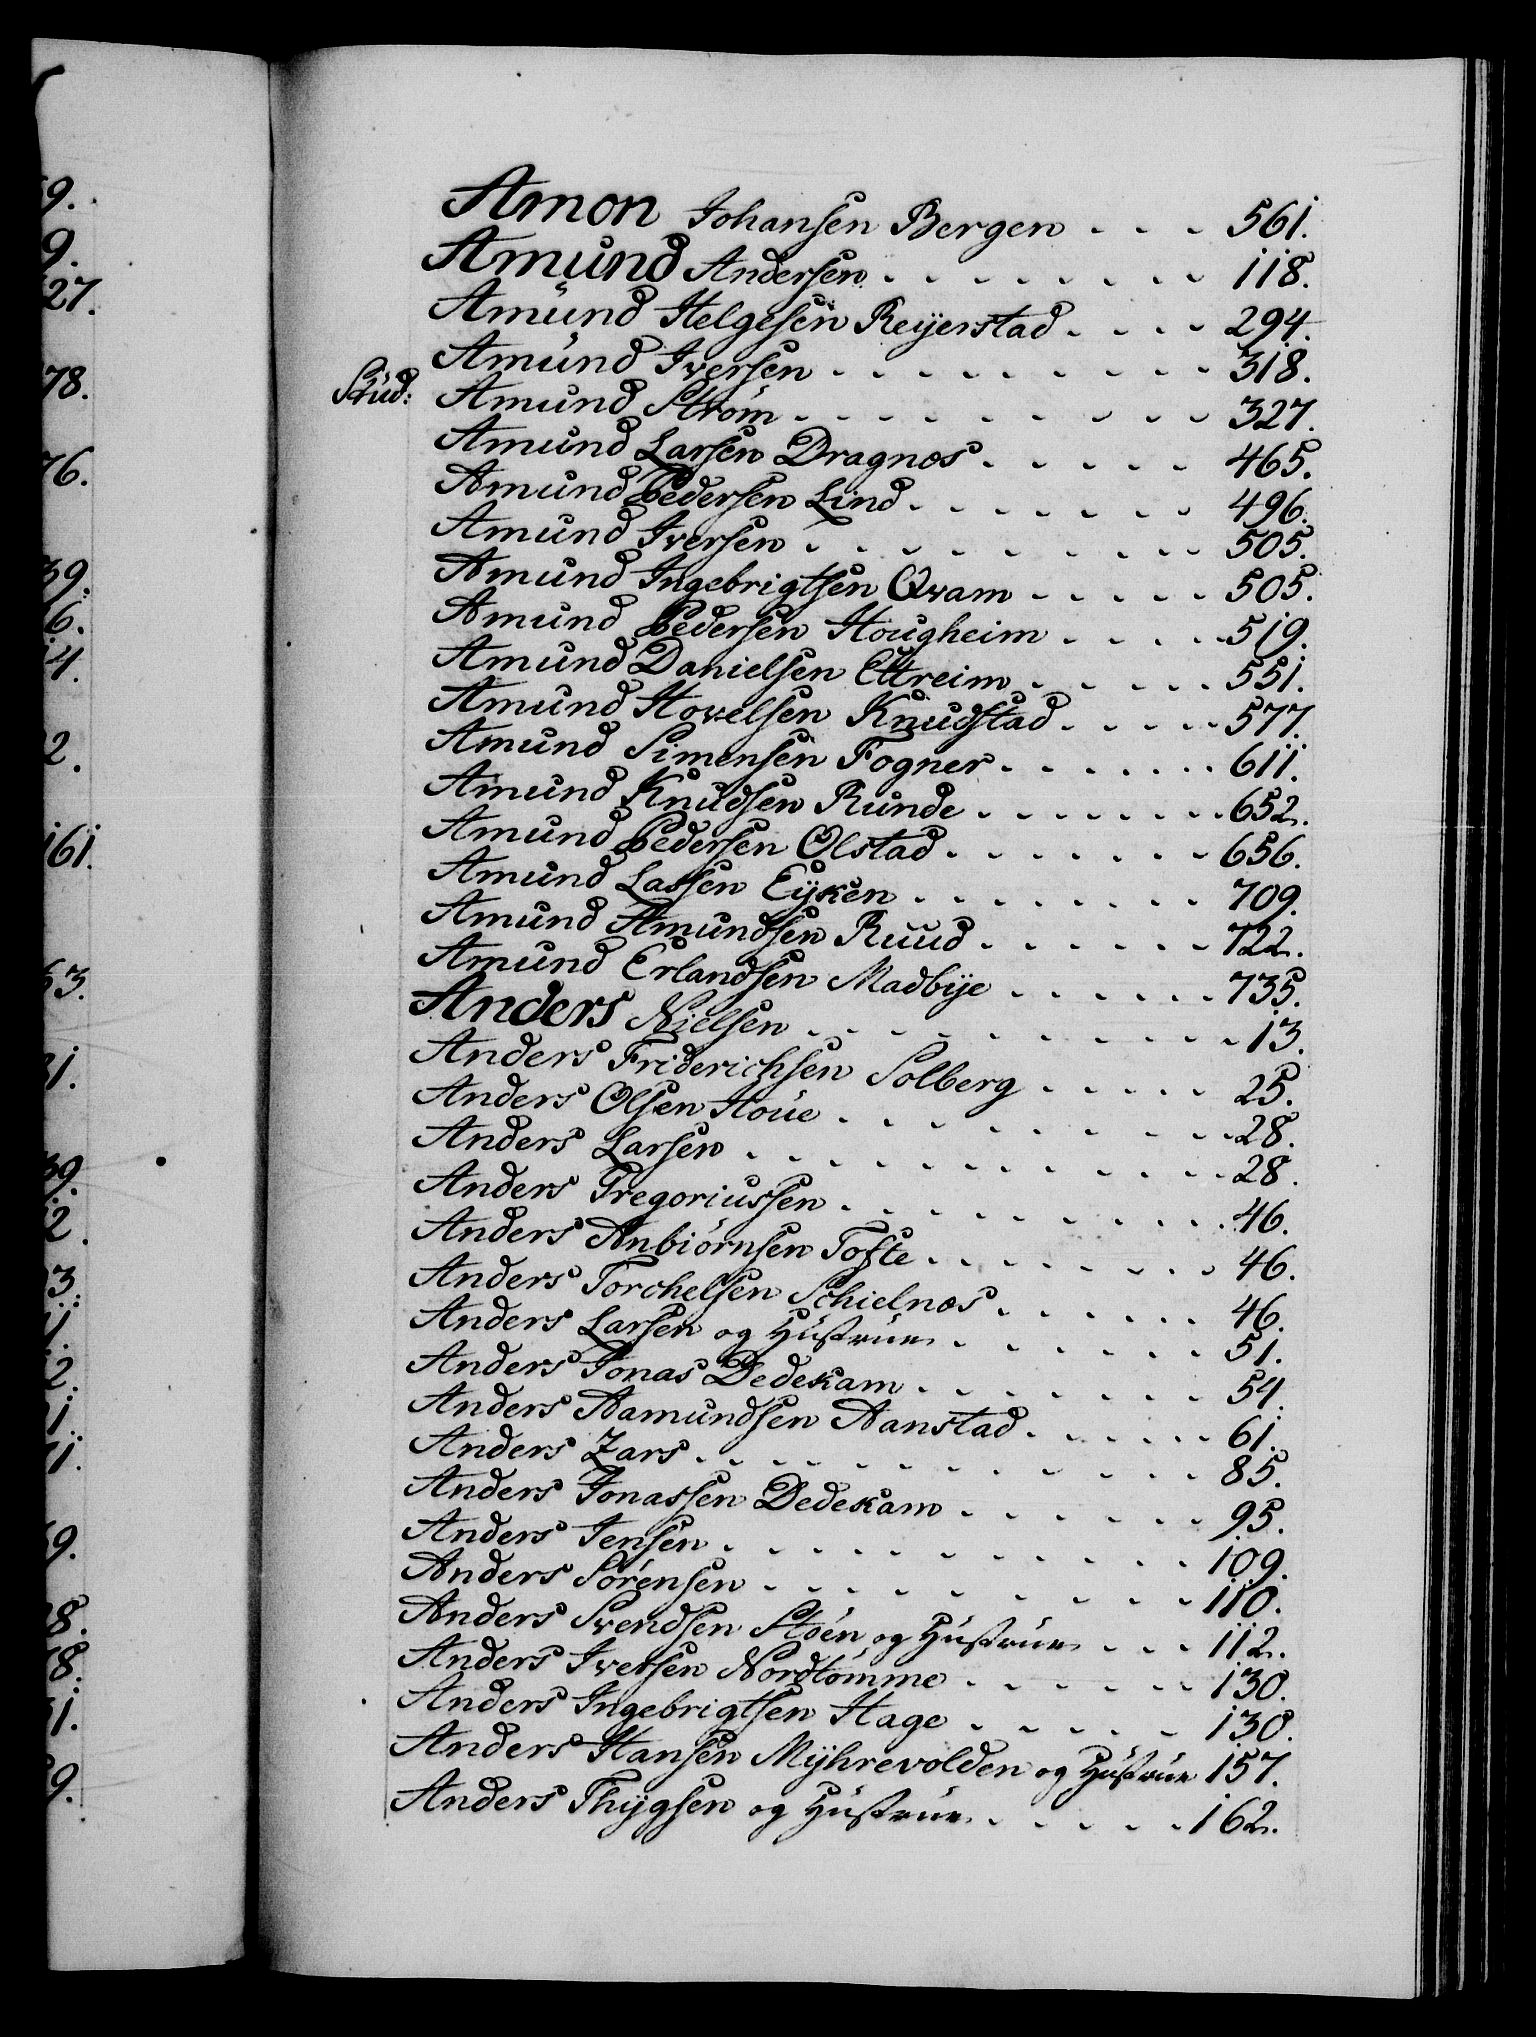 Amon Johansen Bergen - - - 561.
Amund Andersen - - - - - - - - 118.
Amund Helgesen Reÿerstad - - - - 294.
Amund Iversen - - - - - - - - - 318.
Stud: Amund Strøm - - - - - - - - - 327.
Amund Larsen Dragnæs - - - - - 465.
Amund Pedersen Lind - - - - - - - 496.
Amund Iversen - - - - - - - - - 505.
Amund Ingebrigtsen Qvam - - - - - 505.
Amund Pedersen Hougheim - - - - 519.
Amund Danielsen Ettreim - - - - - 551.
Amund Hovelsen Knudstad - - - - - 577.
Amund Simensen Fogner - - - - - - - 611.
Amund Knudsen Runde - - - - - - - - 652.
Amund Pedersen Olstad - - - - - - - 656.
Amund Lassen Eÿken - - - - - - - - 709.
Amund Amundsen Ruud - - - - - - 722.
Amund Erlandsen Madbÿe - - - - - - 735.
Anders Nielsen - - - - - - - - - - 13.
Anders Friderichsen Solberg - - - - - 25.
Anders Olsen Houe - - - - - - - - - 28.
Anders Larsen - - - - - - - - - - - 28.
Anders Gregoriussen - - - - - - - - - 46.
Anders Anbiörnsen Tofte - - - - - - - 46.
Anders Torchelsen Schielnæs - - - - - 46.
Anders Larsen og Hustrue - - - - - - 51.
Anders Jonas Dedekam - - - - - - - 54.
Anders Aamundsen Aanstad - - - - - 61.
Anders Zars - - - - - - - - - - - 85.
Anders Jonassen Dedekam - - - - - - 95.
Anders Jensen - - - - - - - - - - - 109.
Anders Sörensen - - - - - - - - - 110.
Anders Svendsen Stöen og Hustrue - - - 112.
Anders Iversen Nordtömme - - - - - - 130.
Anders Ingebrigtsen Hage - - - - - 130.
Anders Hansen Mÿhrevolden og Hustrue 157.
Anders Thÿgsen og Hustrue - - - - - 162.